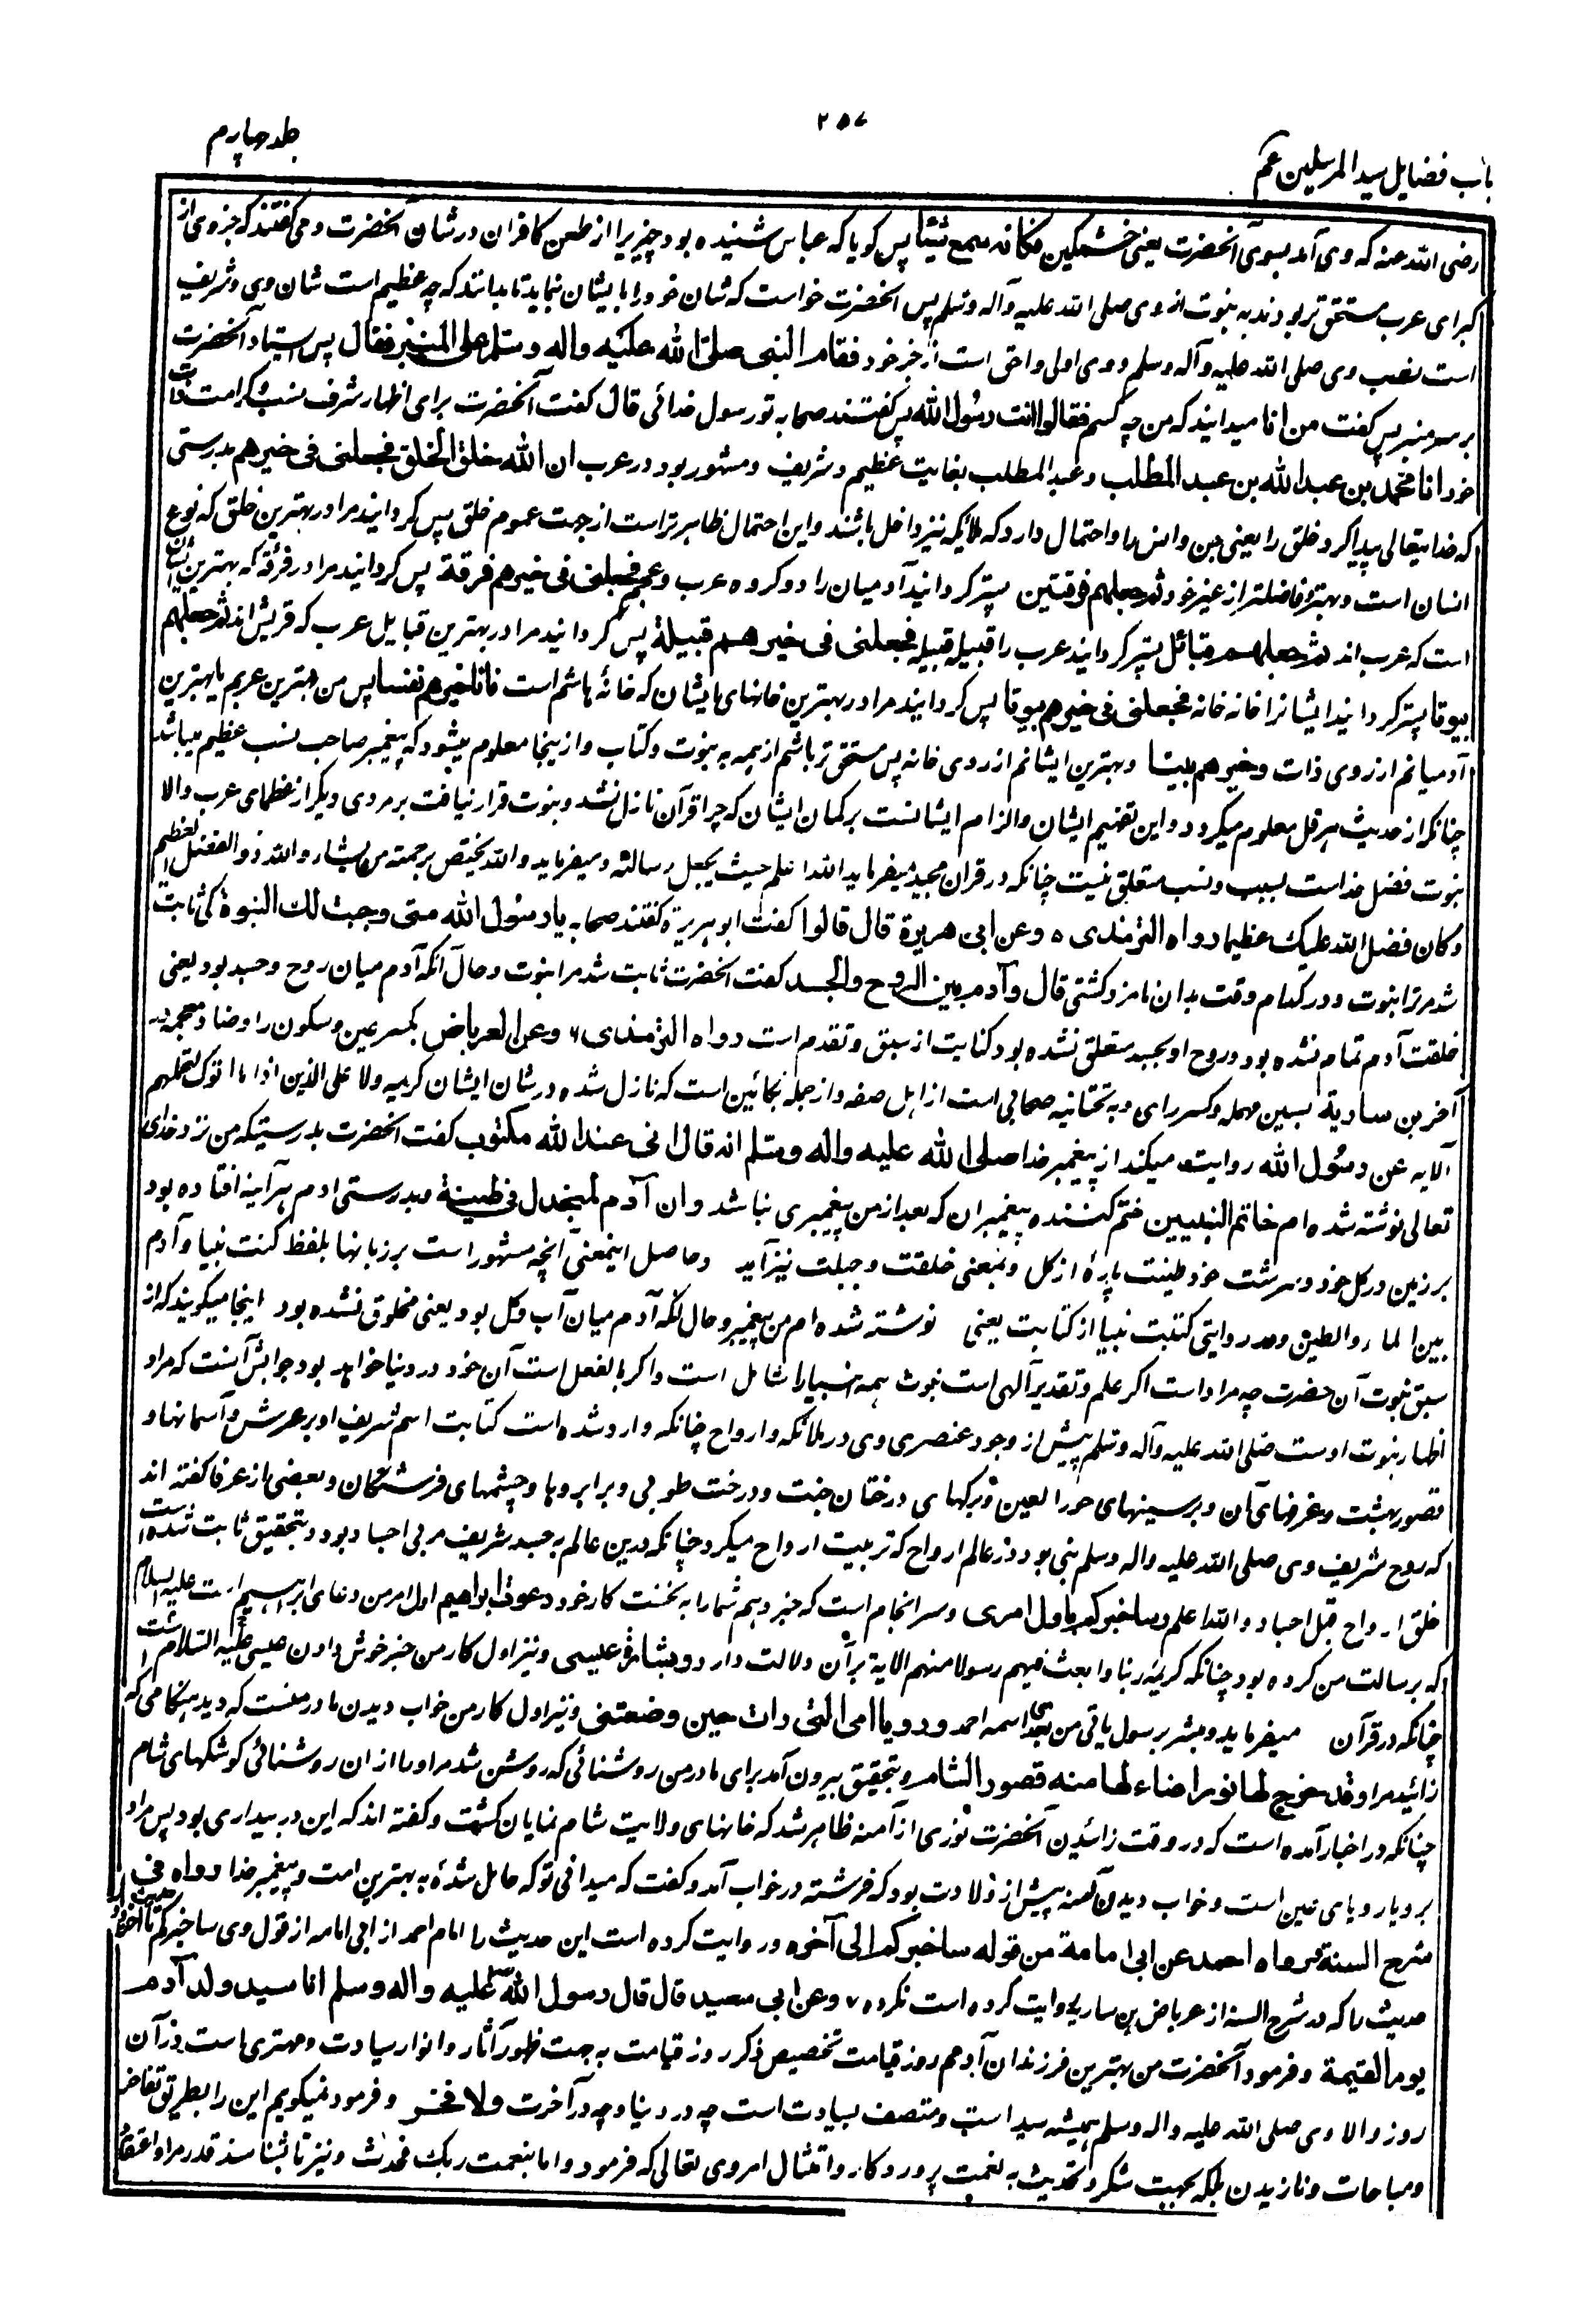 ۲۵۷
جلد چهارم
باب فضایل سید المرسلین عم
رضی الله عنه که وی آمد بسوی آنحضرت یعنی خشمگین فکانه سمع شیئا پس گویا که عباس شنیده بود چیزیرا از طعن کافران در شان آنحضرت و می گفتند که جز وی از
کبرای عرب مستحق تر بودند به نبوت از وی صلی الله علیه وآله وسلم پس آنحضرت خواست که شان خود را بایشان نماید تا بدانند که چه عظیم است شان وی و شریف
است نسب وی صلی الله علیه وآله وسلم و وی اولی و احق است از جز خود فقام النبی صلی الله علیه واله وسلم علی المنبر فقال پس استاد آنحضرت
بر سر منبر پس گفت من انا میدانید که من چه کسم فقالوا انت رسول الله پس گفتند صحابه تو رسول خدائی قال گفت آنحضرت برای اظهار شرف نسب و کرامت ذات
خود انا محمد بن عبدالله بن عبد المطلب و عبد المطلب بغایت عظیم و شریف و مشهور بود در عرب ان الله خلق الخلق فجعلنی فی خیرهم بدرستی
که خدایتعالی پیدا کرد خلق را یعنی جن و انس را و احتمال دارد که ملائکه نیز داخل باشند و این احتمال ظاهر تر است از جهت عموم خلق پس گردانید مرا در بهترین خلق که نوع
انسان است و بهتر و فاضلتر از غیر خود ثم جعلهم فرقتین پستر گردانید آدمیان را دو گروه عرب و عجم فجعلنی فی خیرهم فرقة پس گردانید مرا در فرقه که بهترین ایشان
است که عرب اند ثم جعلهم قبائل پستر گردانید عرب را قبیله قبیله فجعلنی فی خیرهم قبیلة پس گردانید مرا در بهترین قبایل عرب که قریش اند ثم جعلهم
بیوتا پستر گردانید ایشانرا خانه خانه فجعلنی فی خیرهم بیوتا پس گردانید مرا در بهترین خانهای ایشان که خانهٔ هاشم است فانا خیرهم نفسا پس من بهترین عربم یا بهترین
آدمیانم از روی ذات و خیرهم بیتا و بهترین ایشانم از روی خانه پس مستحق تر باشم از همه به نبوت و کتاب و از ینجا معلوم میشود که پیغمبر صاحب نسب عظیم میباشد
چنانکه از حدیث هرقل معلوم میگردد و این تفهیم ایشان و الزام ایشانست بر گمان ایشان که چرا قرآن نازل نشد و نبوت قرار نیافت بر مردی دیگر از عظمای عرب والا
نبوت فضل خداست بسبب و نسب متعلق نیست چنانکه در قران مجید میفرماید الله اعلم حیث یجعل رسالته و میفرماید والله یختص برحمته من یشاء والله ذو الفضل العظیم
وکان فضل الله علیک عظیما رواه الترمذی ٥ وعن ابی هریرة قال قالوا گفت ابو هریره گفتند صحابه یا رسول الله متی وجبت لک النبوة کی ثابت
شد مر ترا نبوت و در کدام وقت بدان نامزد گشتی قال وآدم بین الروح والجسد گفت آنحضرت ثابت شد مرا نبوت و حال آنکه آدم میان روح و جسد بود یعنی
خلقت آدم تمام نشده بود و روح او بجسد متعلق نشده بود کنایت از سبق و تقدم است رواه الترمذی ۶ وعن العرباض بکسر عین و سکون را و ضاد معجمه در
آخر بن ساریة بسین مهمله و کسر رای و به تحتانیه صحابی است از اهل صفه و از جمله بکائین است که نازل شده در شان ایشان کریمه ولا علی الذین اذا ما اتوک لتحملهم
الایه عن رسول الله روایت میکند از پیغمبر خدا صلی الله علیه واله وسلم انه قال انی عند الله مکتوب گفت آنحضرت بدرستیکه من نزد خدای
تعالی نوشته شده ام خاتم النبیین ختم کننده پیغمبران که بعد از من پیغمبری نباشد وان آدم لمنجدل فی طینة و بدرستی ادم هر آینه افتاده بود
بر زمین در گل خود و سرشت خود طینت پارهٔ از گل و بمعنی خلقت و جبلت نیز آید و حاصل اینمعنی آنچه مشهور است بر زبانها بلفظ کنت نبیا وآدم
بین الماء والطین و در روایتی کتبت نبیا از کتابت یعنی نوشته شده ام من پیغمبر و حال آنکه آدم میان آب و گل بود یعنی مخلوق نشده بود اینجا میگویند که از
سبق نبوت آن حضرت چه مراد است اگر علم و تقدیر الهی است نبوت همه انبیا را شامل است و اگر بالفعل است آن خود در دنیا خواهد بود جوابش آنست که مراد
اظهار نبوت اوست صلی الله علیه وآله وسلم پیش از وجود عنصری وی در ملائکه و ارواح چنانکه وارد شده است کتابت اسم شریف او بر عرش و آسمانها و
قصور بهشت و غرفهای آن و بر سینهای حور العین و برگهای درختان جنت و درخت طوبی و بر ابروها و چشمهای فرشتگان و بعضی از عرفا گفته اند
که روح شریف وی صلی الله علیه واله وسلم نبی بود در عالم ارواح که تربیت ارواح میکرد چنانکه درین عالم به جسد شریف مربی اجساد بود و بتحقیق ثابت شده است
خلق ارواح قبل اجساد والله اعلم وساخبرکم باول امری و سرانجام است که خبر دهم شما را به نخست کار خود دعوة ابراهیم اول امر من دعای ابراهیم است علیه السلام
که برسالت من کرده بود چنانکه کریمه ربنا وابعث فیهم رسولا منهم الایة بر آن دلالت دارد وبشارة عیسی و نیز اول کار من خبر خوش دادن عیسی علیه السلام است
چنانکه در قرآن میفرماید ومبشر برسول یاتی من بعدی اسمه احمد ورؤیا امی التی رات حین وضعتنی و نیز اول کار من خواب دیدن مادر منست که دید هنگامی که
زائید مرا وقد خرج لها نور اضاء لها منه قصور الشام و بتحقیق بیرون آمد برای مادر من روشنائی که روشن شد مر او را از ان روشنائی کوشکهای شام
چنانکه در اخبار آمده است که در وقت زائیدن آنحضرت نوری از آمنه ظاهر شد که خانهای ولایت شام نمایان گشت و گفته اند که این در بیداری بود پس مراد
برویا رویای عین است و خواب دیدن آمنه پیش از ولادت بود که فرشته در خواب آمد و گفت که میدانی تو که حامل شدهٔ به بهترین امت و پیغمبر خدا رواه فی
شرح السنة ورواه احمد عن ابی امامة من قوله ساخبرکم الی آخره و روایت کرده است این حدیث را امام احمد از ابی امامه از قول وی ساخبرکم تا آخر
حدیث را که در شرح السنه از عرباض بن ساریه روایت کرده است نکرده ۷ وعن ابی سعید قال قال رسول الله صلی علیه واله وسلم انا سید ولد آدم
یوم القیمة و فرمود آنحضرت من بهترین فرزندان آدمم روز قیامت تخصیص ذکر روز قیامت به جهت ظهور آثار و انوار سیادت و مهتری است در آن
روز والا وی صلی الله علیه واله وسلم همیشه سید است و متصف بسیادت است چه در دنیا و چه در آخرت ولا فخر و فرمود نمیگویم این را بطریق تفاخر
و مباحات و نازیدن بلکه بجهت شکر و تحدیث به نعمت پروردگار و امتثال امر وی تعالی که فرمود واما بنعمت ربک فحدث و نیز تا بشناسند قدر مرا و اعتقاد